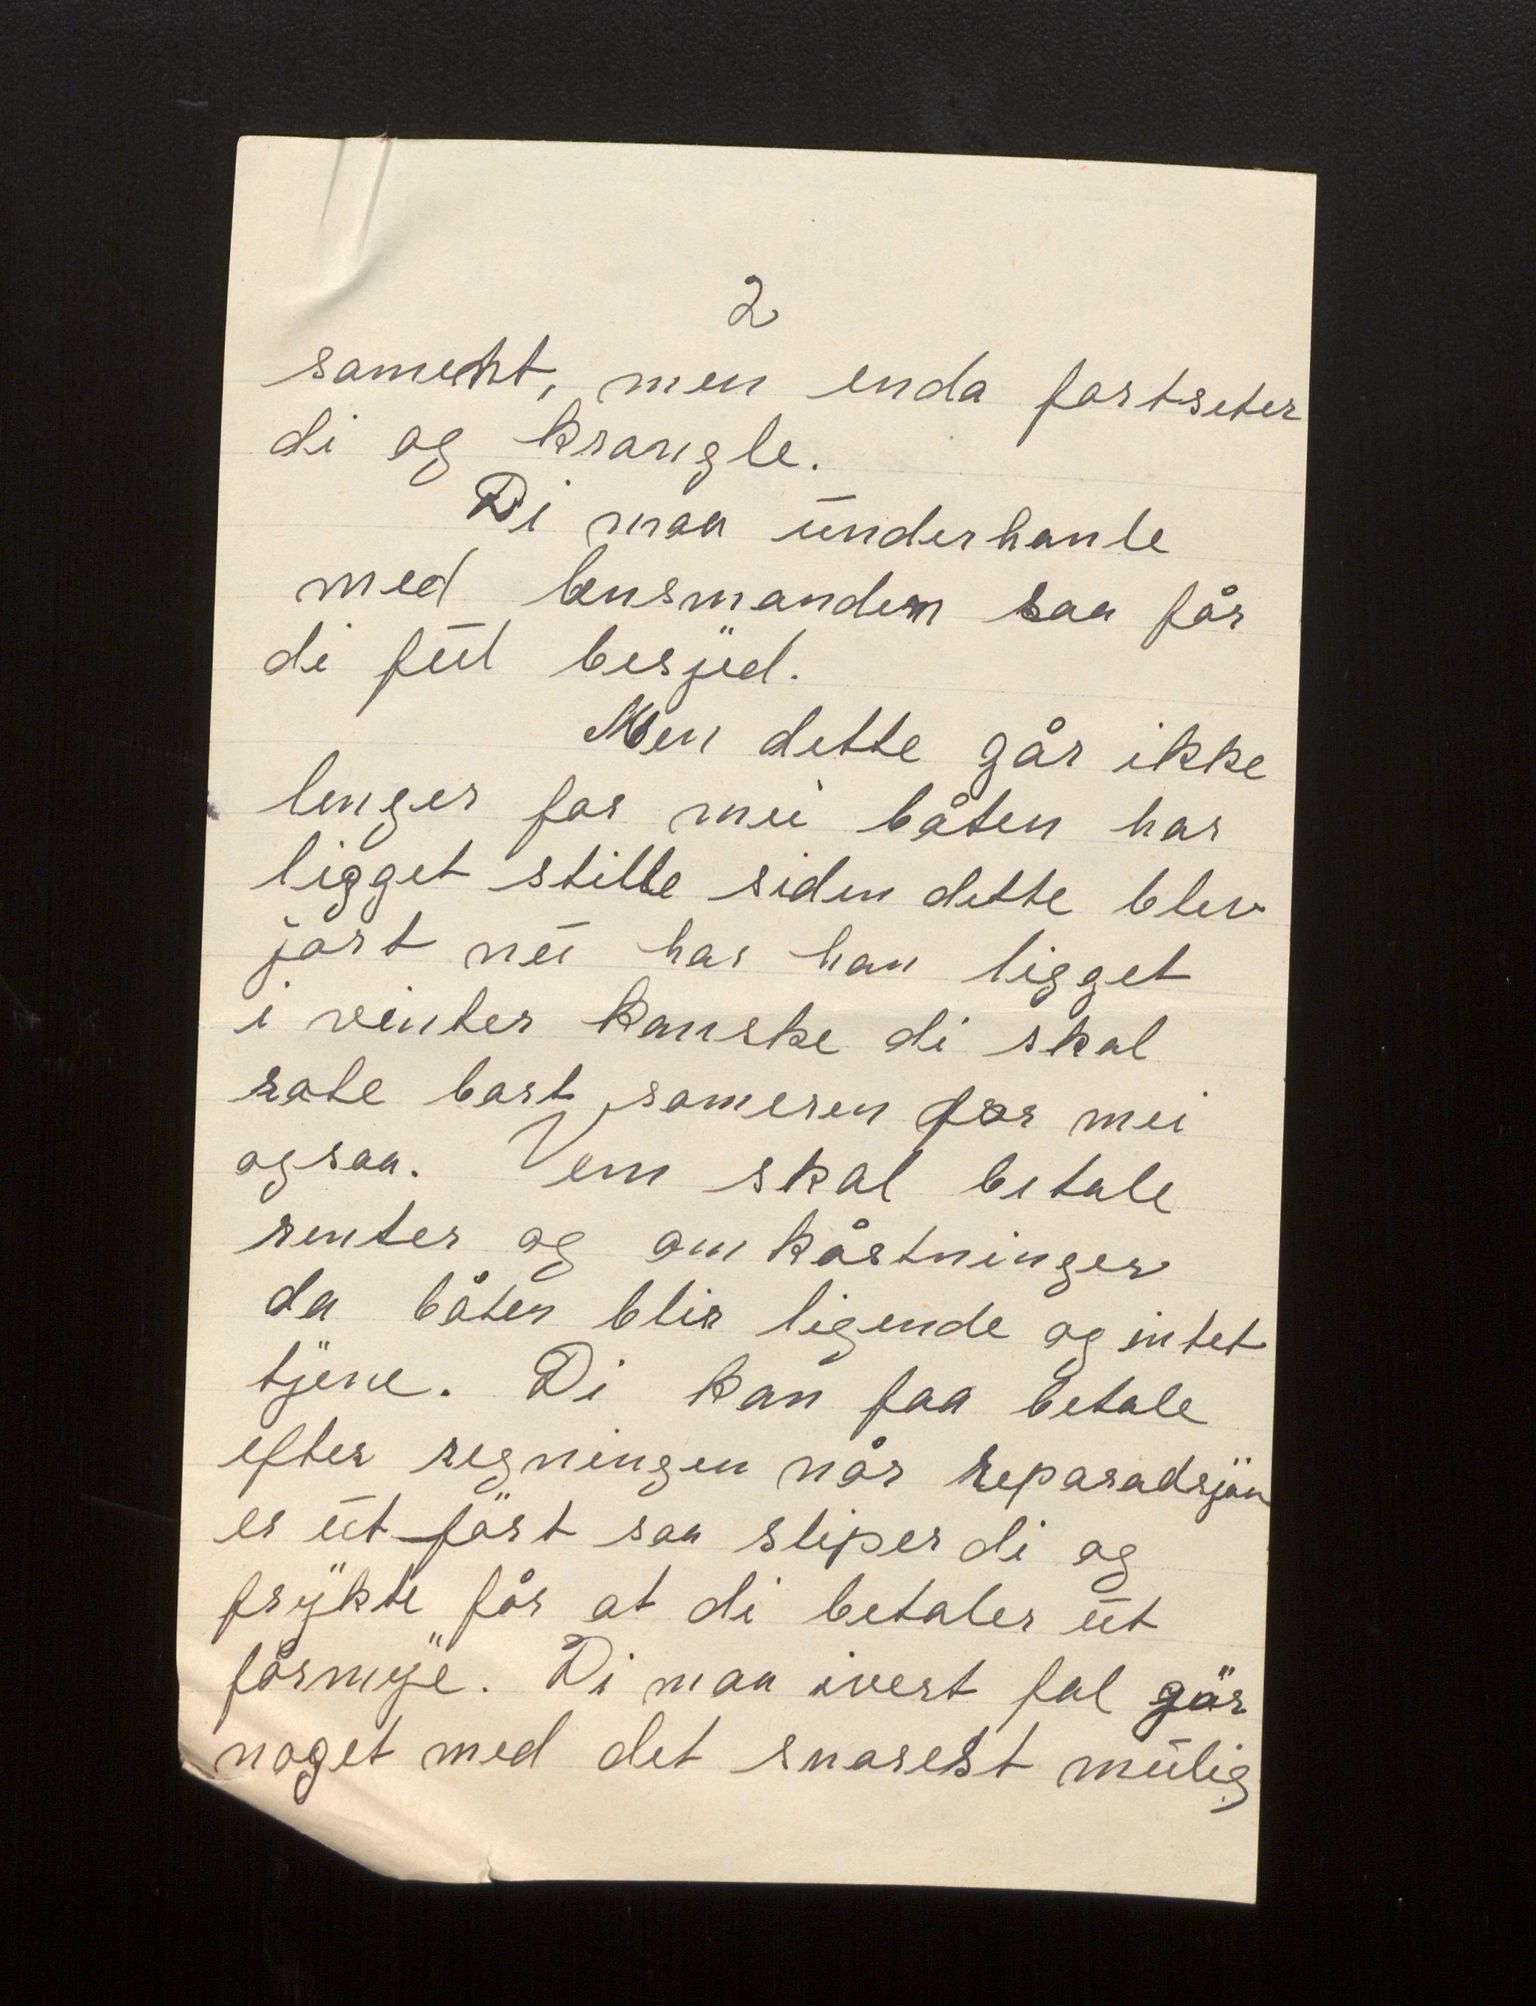 2
samenht, men enda fortseter
di og krangle.
Di maa underhanle
med lensmanden saa får
di ful besjed.
Men dette går ikke
lenger for mei båten har
ligget stille siden dette blev
jort nu har han ligget
i vinter kanske di skal
rote bort someren for mei
ogsaa. Vem skal betale
renter og omkåstninger
da båten blir ligende og intet
tjene. Di kan faa betale
efter regningen når reparadsjön
er ut fört saa sliper di og
frykte får at di betaler ut
förmye. Di maa ivert fal gör
noget med det snarest mulig